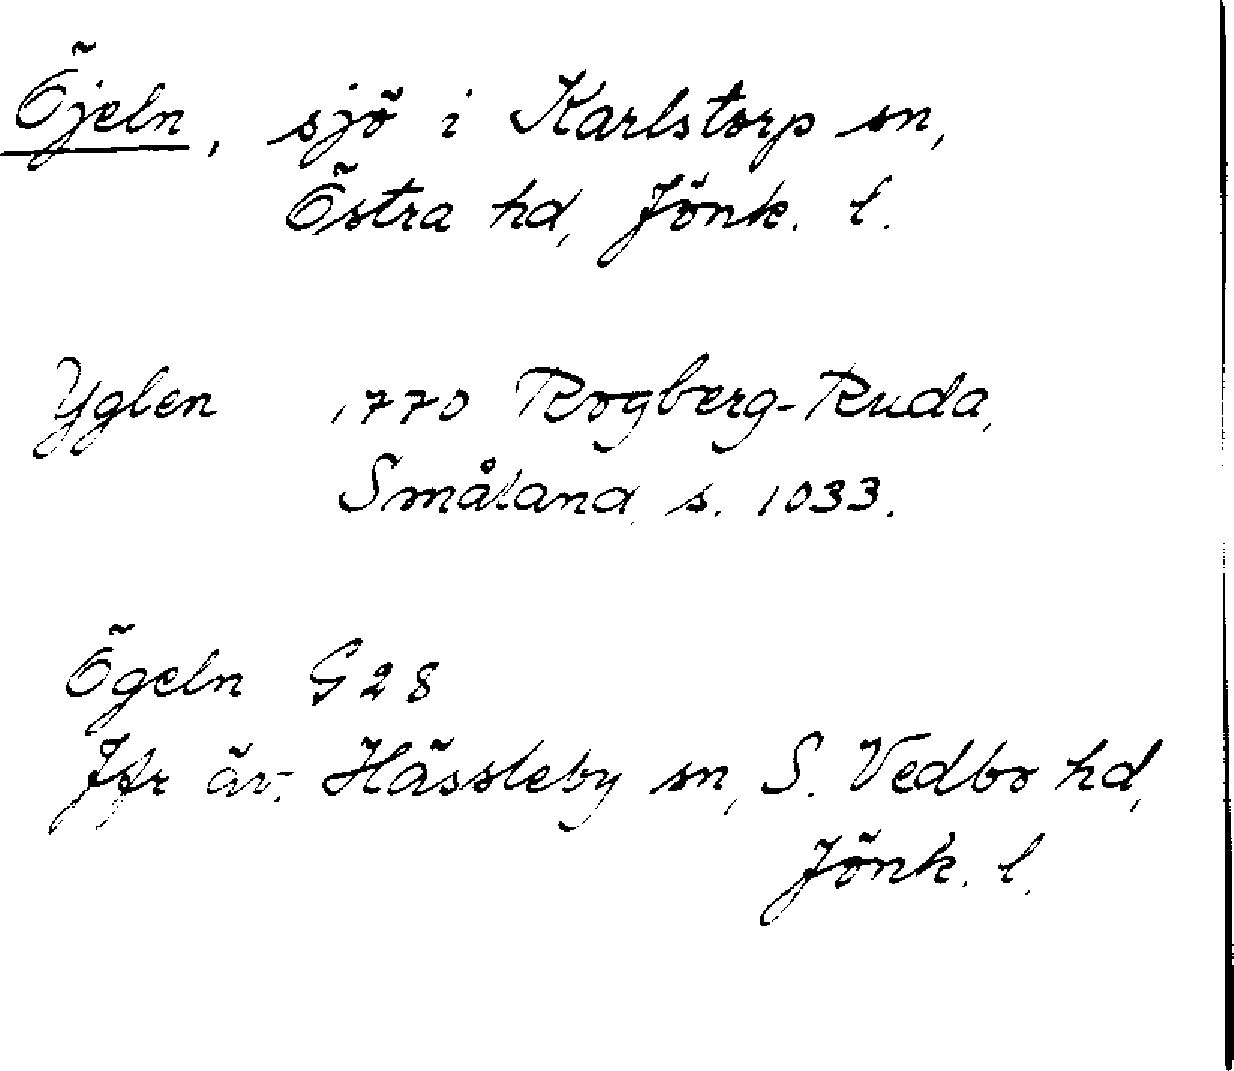 Öjeln, sjö i Karlstorp sn,
Östra hd, Jönk. l.
Yglen 1770 Rogberg-Ruda,
Småland, s. 1033.
Ögeln G28
Jfr äv. Hässleby sn, S. Vedbo hd,
Jönk. l.